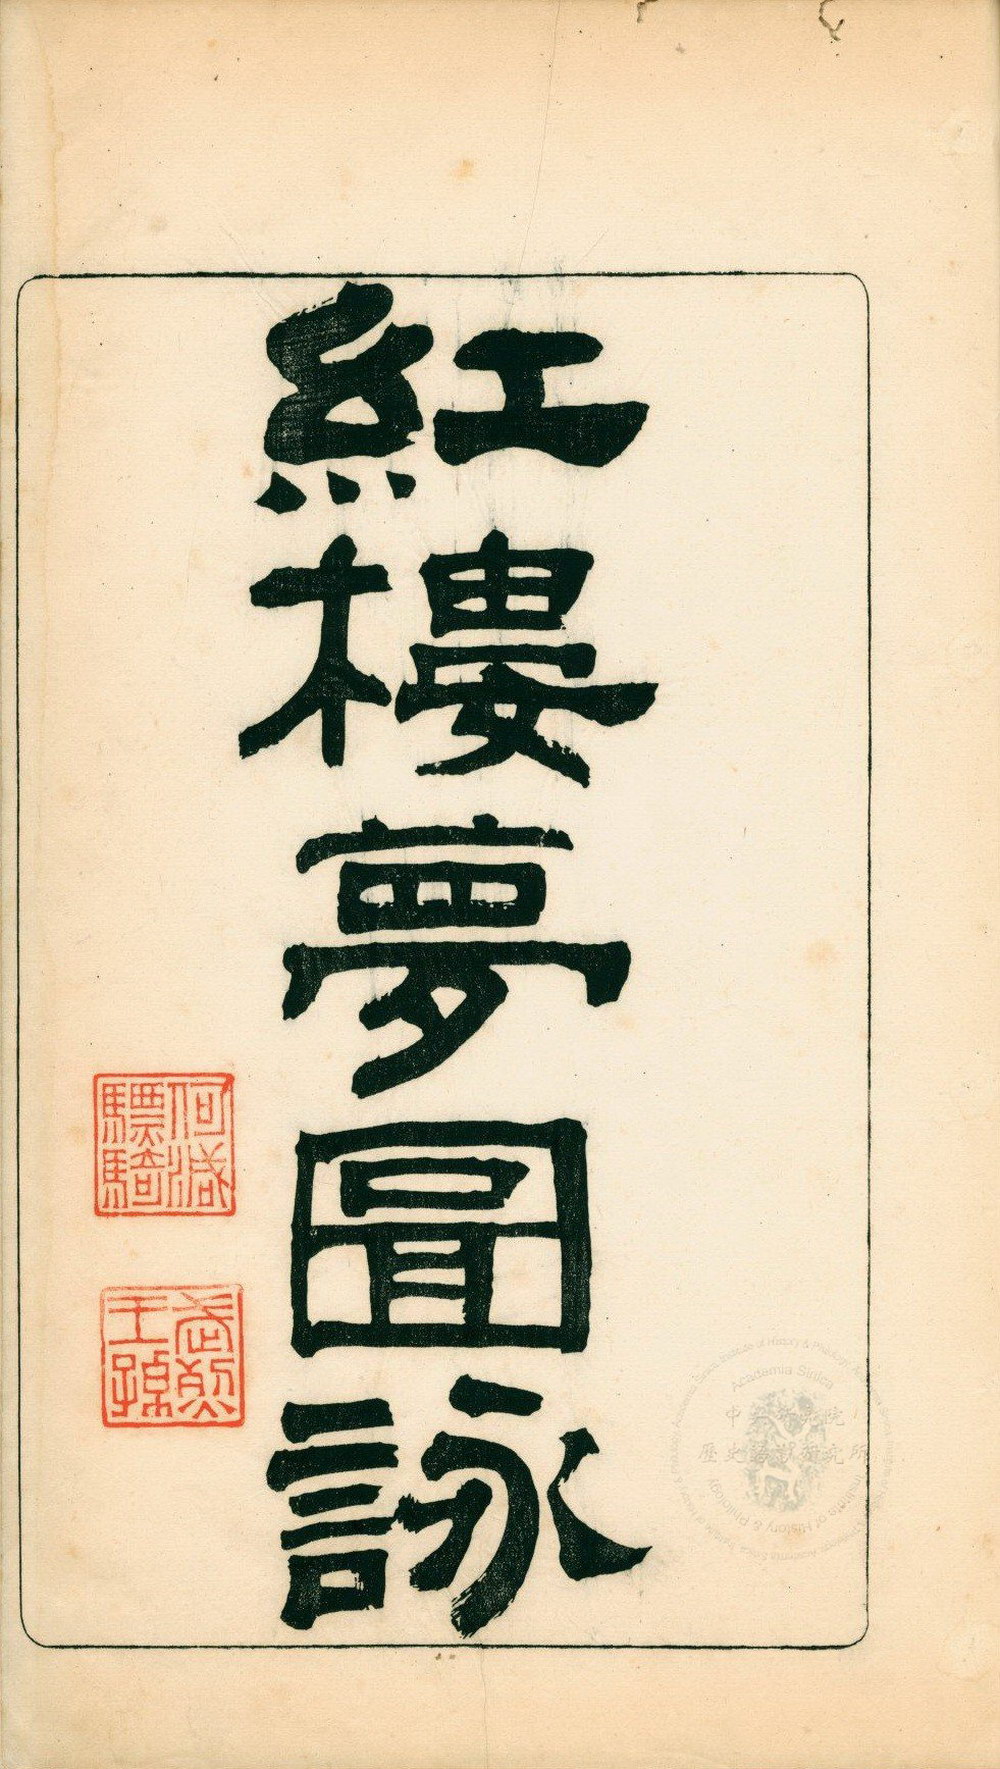 紅樓夢圖詠
何減
驃騎
武烈
王孫
Academia Sinica
中央研究院
歷史語言研究所
Institute of History & Philology